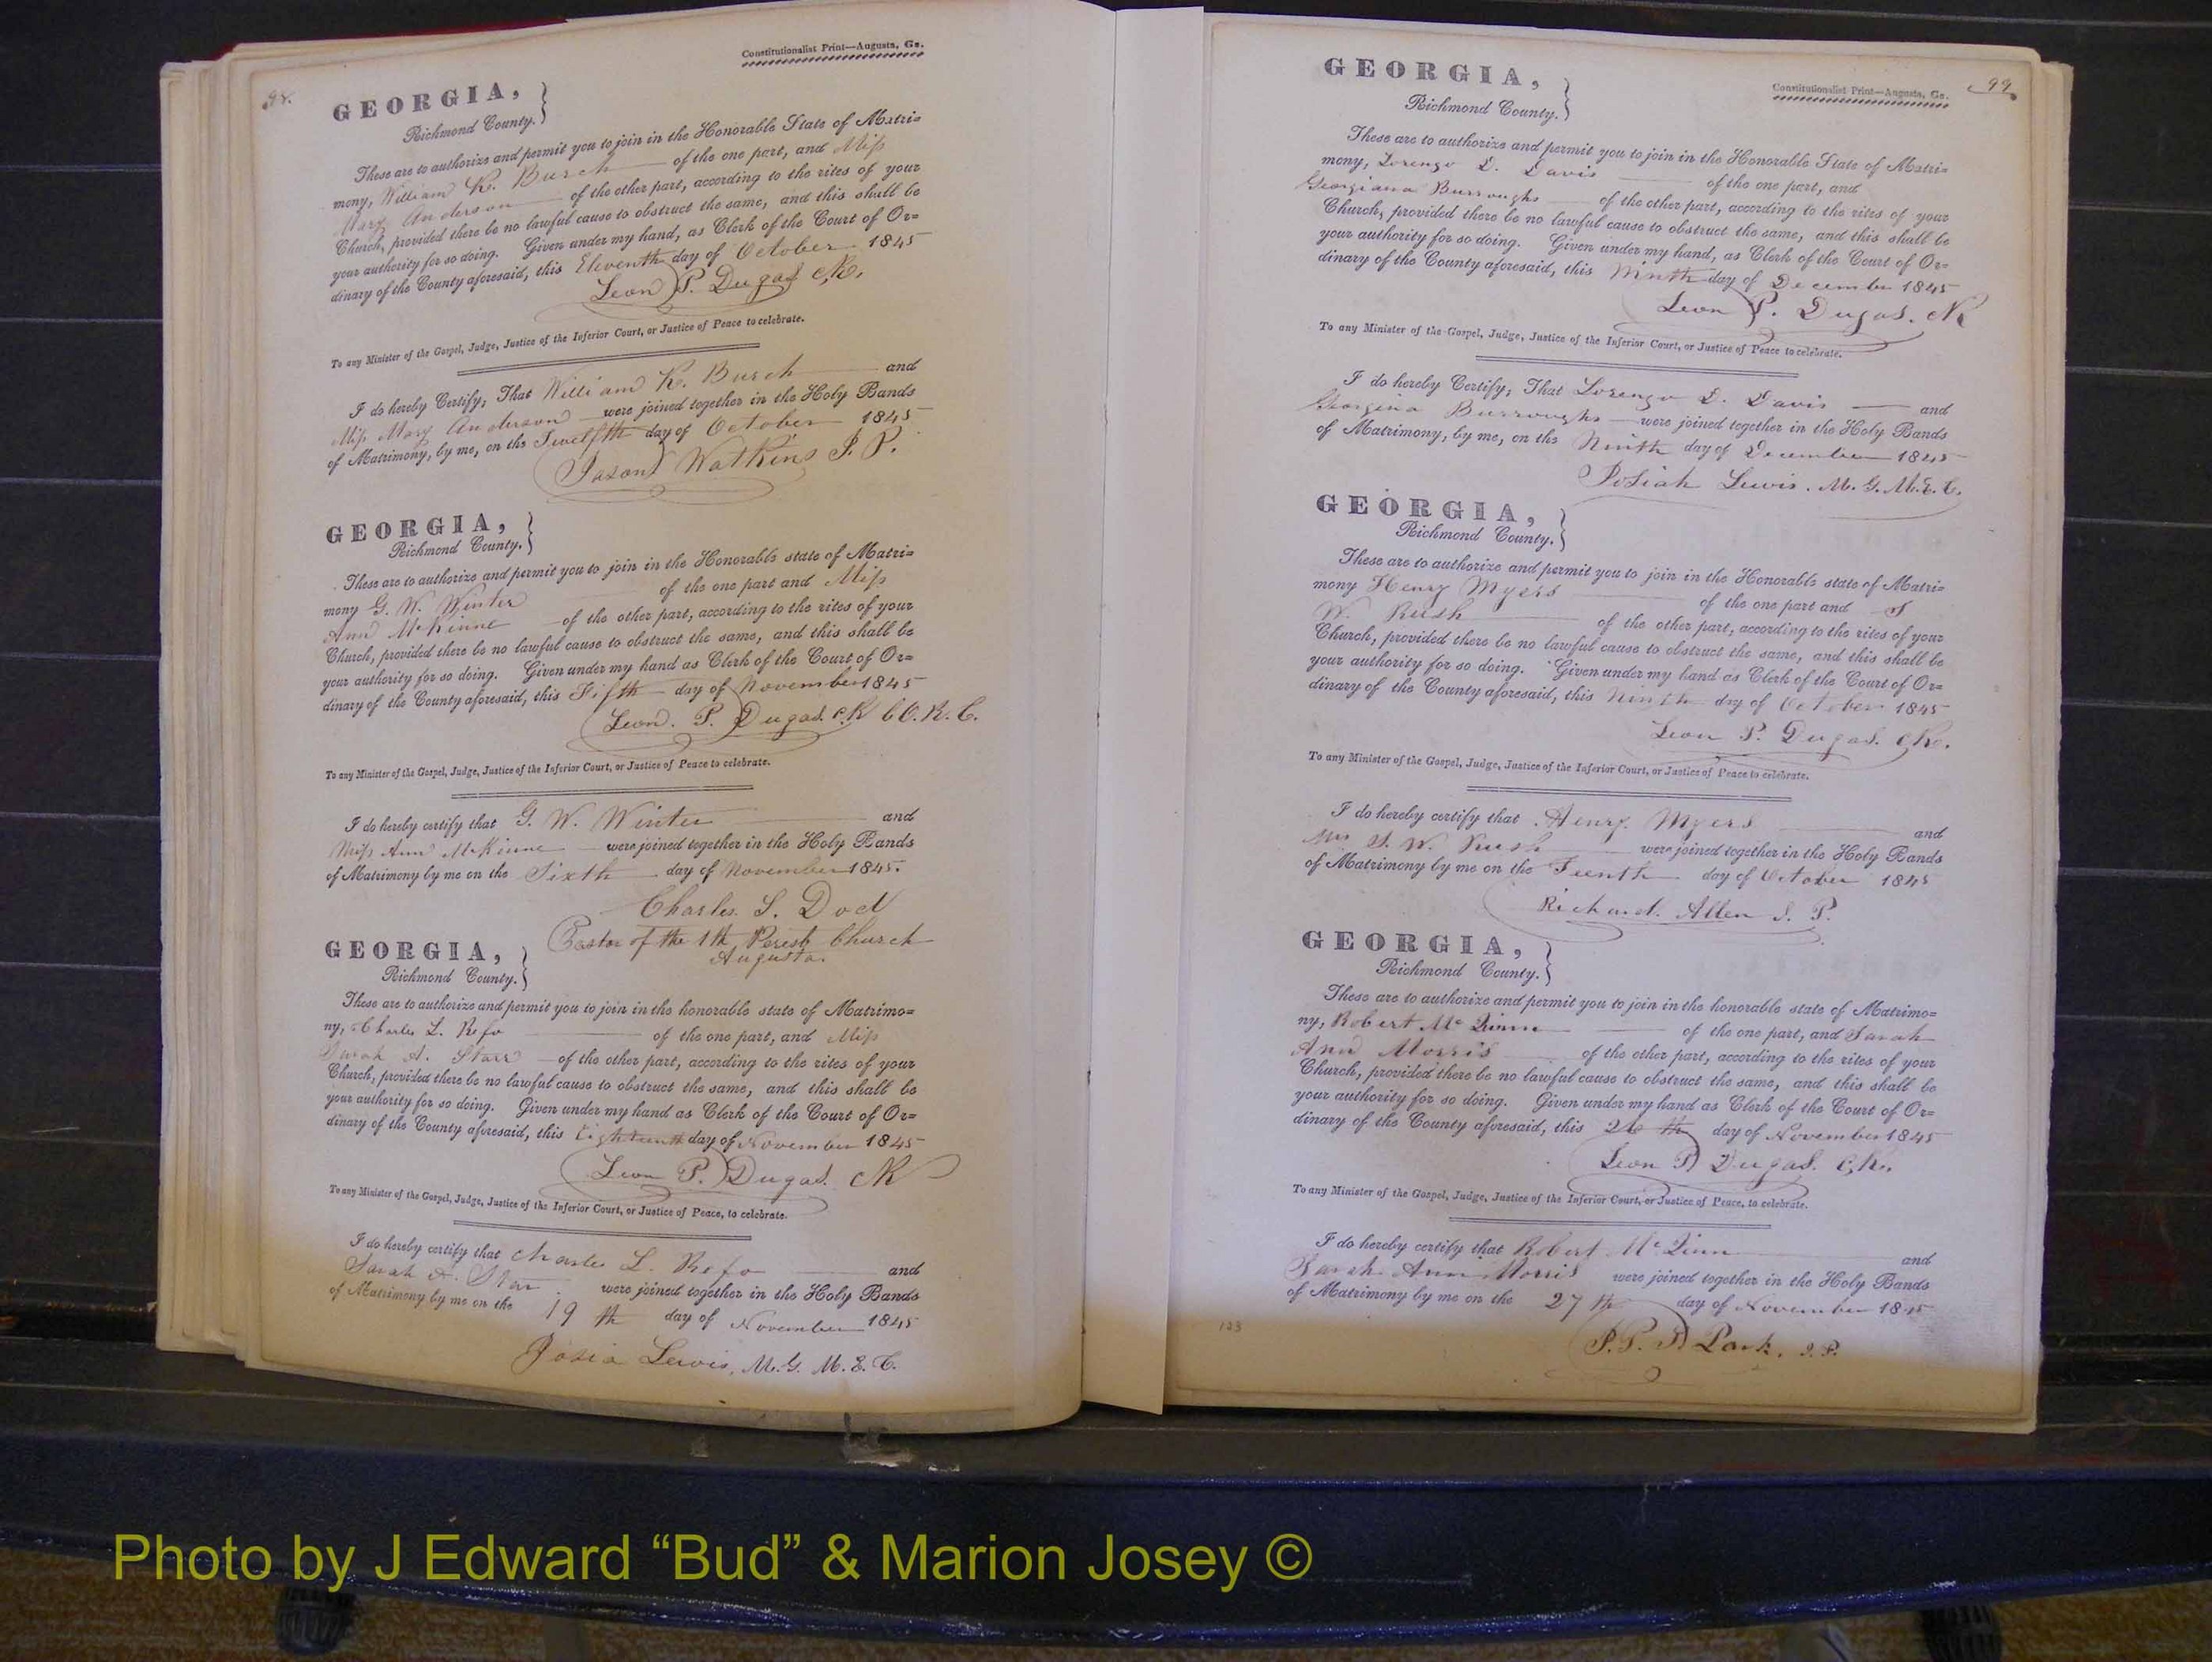 98.
Constitutionalist Print—Augusta, Ga.
GEORGIA,
Richmond County.
These are to authorize and permit you to join in the Honorable State of Matri=
mony, William R. Burch of the one part, and Miss
Mary Anderson of the other part, according to the rites of your
Church, provided there be no lawful cause to obstruct the same, and this shall be
your authority for so doing. Given under my hand, as Clerk of the Court of Or=
dinary of the County aforesaid, this Eleventh day of October 1845
Leon P. Dugas Clk.
To any Minister of the Gospel, Judge, Justice of the Inferior Court, or Justice of Peace to celebrate.
I do hereby Certify, That William R. Burch and
Miss Mary Anderson were joined together in the Holy Bands
of Matrimony, by me, on the Twelfth day of October 1845
Jason Watkins J. P.
GEORGIA,
Richmond County.
These are to authorize and permit you to join in the Honorable state of Matri=
mony G. W. Winter of the one part and Miss
Ann McKinne of the other part, according to the rites of your
Church, provided there be no lawful cause to obstruct the same, and this shall be
your authority for so doing. Given under my hand as Clerk of the Court of Or=
dinary of the County aforesaid, this Fifth day of November 1845
Leon. P. Dugas. Clk C.O.R.C.
To any Minister of the Gospel, Judge, Justice of the Inferior Court, or Justice of Peace to celebrate.
I do hereby certify that G. W. Winter and
Miss Ann McKinne were joined together in the Holy Bands
of Matrimony by me on the Sixth day of November 1845.
Charles. S. Dod
Pastor of the 1th Presh Church
Augusta.
GEORGIA,
Richmond County.
These are to authorize and permit you to join in the honorable state of Matrimo=
ny, Charles L. Refo of the one part, and Miss
Sarah A. Starr of the other part, according to the rites of your
Church, provided there be no lawful cause to obstruct the same, and this shall be
your authority for so doing. Given under my hand as Clerk of the Court of Or=
dinary of the County aforesaid, this Eighteenth day of November 1845
Leon P. Dugas. Clk
To any Minister of the Gospel, Judge, Justice of the Inferior Court, or Justice of Peace, to celebrate.
I do hereby certify that Charles L. Refo and
Sarah A. Starr were joined together in the Holy Bands
of Matrimony by me on the 19 th day of November 1845
Josia Lewis, M. G. M. E. C.
99.
Constitutionalist Print—Augusta, Ga.
GEORGIA,
Richmond County.
These are to authorize and permit you to join in the Honorable State of Matri=
mony, Lorenzo D. Davis of the one part, and
Georgiana Burroughs of the other part, according to the rites of your
Church, provided there be no lawful cause to obstruct the same, and this shall be
your authority for so doing. Given under my hand, as Clerk of the Court of Or=
dinary of the County aforesaid, this Ninth day of December 1845
Leon P. Dugas. Clk
To any Minister of the Gospel, Judge, Justice of the Inferior Court, or Justice of Peace to celebrate.
I do hereby Certify, That Lorenzo D. Davis and
Georgina Burroughs were joined together in the Holy Bands
of Matrimony, by me, on the Ninth day of December 1845
Josiah Lewis. M. G. M. E. C.
GEORGIA,
Richmond County.
These are to authorize and permit you to join in the Honorable state of Matri=
mony Henry Myers of the one part and S
W. Rush of the other part, according to the rites of your
Church, provided there be no lawful cause to obstruct the same, and this shall be
your authority for so doing. Given under my hand as Clerk of the Court of Or=
dinary of the County aforesaid, this Ninth day of October 1845
Leon P. Dugas. Clk.
To any Minister of the Gospel, Judge, Justice of the Inferior Court, or Justice of Peace to celebrate.
I do hereby certify that Henry Myers and
S. W. Rush were joined together in the Holy Bands
of Matrimony by me on the Teenth day of October 1845
Richard. Allen J. P.
GEORGIA,
Richmond County.
These are to authorize and permit you to join in the honorable state of Matrimo=
ny, Robert Mc Quinn of the one part, and Sarah
Ann Morris of the other part, according to the rites of your
Church, provided there be no lawful cause to obstruct the same, and this shall be
your authority for so doing. Given under my hand as Clerk of the Court of Or=
dinary of the County aforesaid, this 26 th day of November 1845
Leon P. Dugas. Clk.
To any Minister of the Gospel, Judge, Justice of the Inferior Court, or Justice of Peace, to celebrate.
I do hereby certify that Robert Mc Quinn and
Sarah Ann Morris were joined together in the Holy Bands
of Matrimony by me on the 27 th day of November 1845
Park, J. P.
123
Photo by J Edward “Bud” & Marion Josey ©